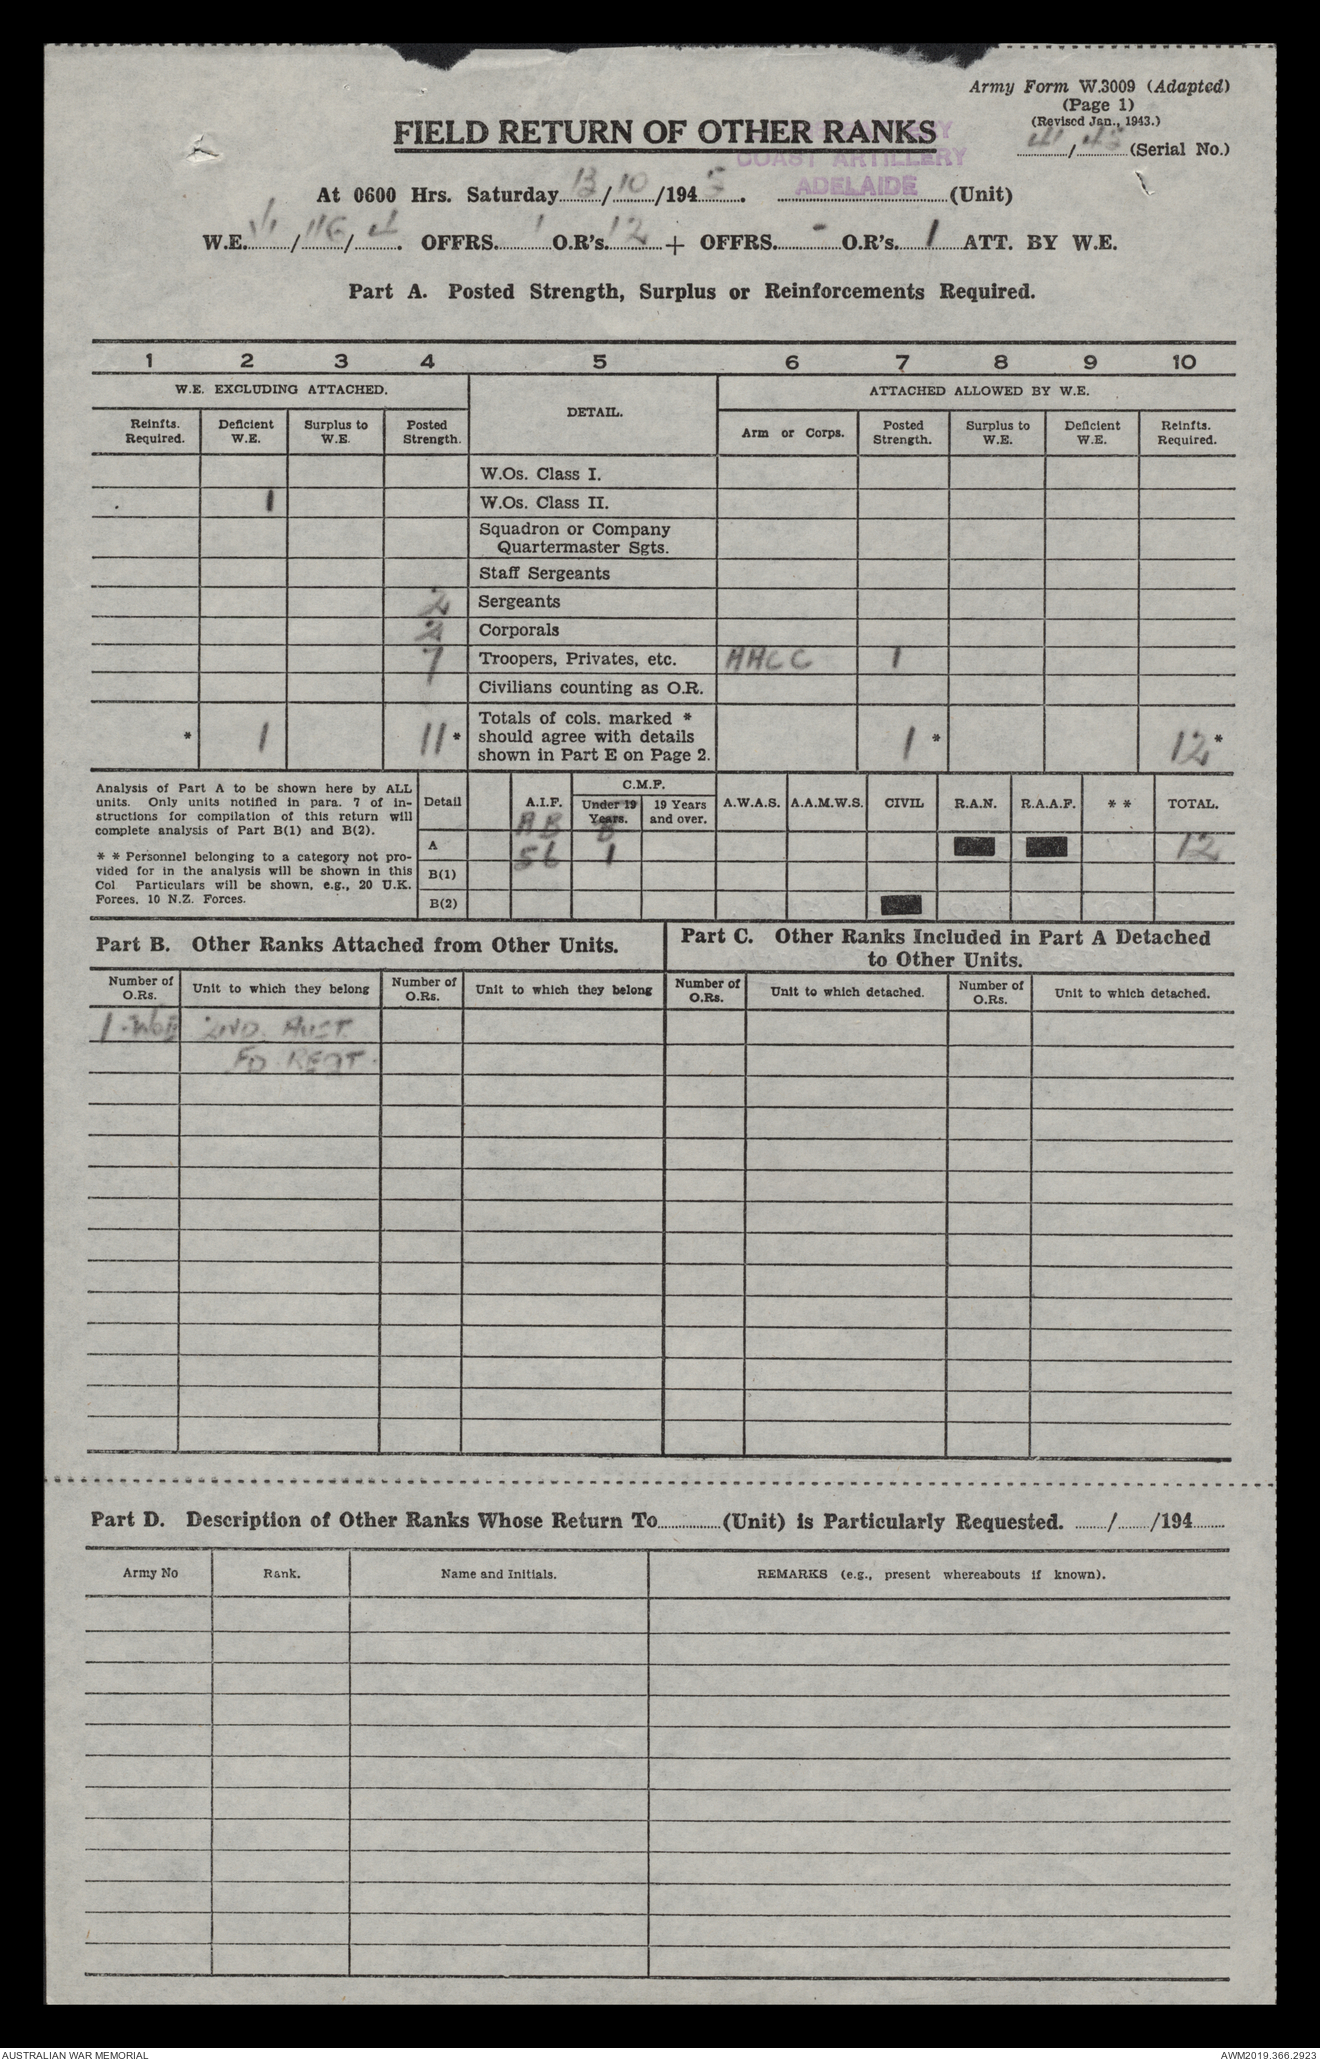 Army Form W.3009 (Adapted)
(Page 1)
(Revised Jan., 1943.)
41/45 (Serial No.)
FIELD RETURN OF OTHER RANKS
COAST ARTILLERY
ADELAIDE
At 0600 Hrs. Saturday 13/10/1945. (Unit)
W.E. / / . OFFRS. 1 O.R's. 12 + OFFRS. - O.R's. 1 ATT. BY W.E.
Part A. Posted Strength, Surplus or Reinforcements Required.
1 2 3 4 5 6 7 8 9 10
W.E. EXCLUDING ATTACHED. DETAIL. ATTACHED ALLOWED BY W.E.
Reinfts. Required. Deficient W.E. Surplus to W.E. Posted Strength. Arm or Corps. Posted Strength. Surplus to W.E. Deficient W.E. Reinfts. Required.
W.Os. Class I.
1 W.Os. Class II.
Squadron or Company
Quartermaster Sgts.
Staff Sergeants
2 Sergeants
2 Corporals
7 Troopers, Privates, etc. AACC 1
Civilians counting as O.R.
Totals of cols. marked *
should agree with details
* 1 11* shown in Part E on Page 2. 1* 12*
Analysis of Part A to be shown here by ALL
units. Only units notified in para. 7 of in-
structions for compilation of this return will
complete analysis of Part B(1) and B(2).
* * Personnel belonging to a category not pro-
vided for in the analysis will be shown in this
Col Particulars will be shown, e.g., 20 U.K.
Forces, 10 N.Z. Forces.
Detail A.I.F. C.M.F. A.W.A.S. A.A.M.W.S. CIVIL R.A.N. R.A.A.F. * * TOTAL.
Under 19 Years. 19 Years and over.
A B B
A 5 6 1 12
B(1)
B(2)
Part B. Other Ranks Attached from Other Units.
Part C. Other Ranks Included in Part A Detached
to Other Units.
Number of O.Rs. Unit to which they belong Number of O.Rs. Unit to which they belong Number of O.Rs. Unit to which detached. Number of O.Rs. Unit to which detached.
1 WOII 2ND. AUST.
FD. REGT.
Part D. Description of Other Ranks Whose Return To (Unit) is Particularly Requested. / /194
Army No Rank. Name and Initials. REMARKS (e.g., present whereabouts if known).
AUSTRALIAN WAR MEMORIAL AWM2019.366.2923